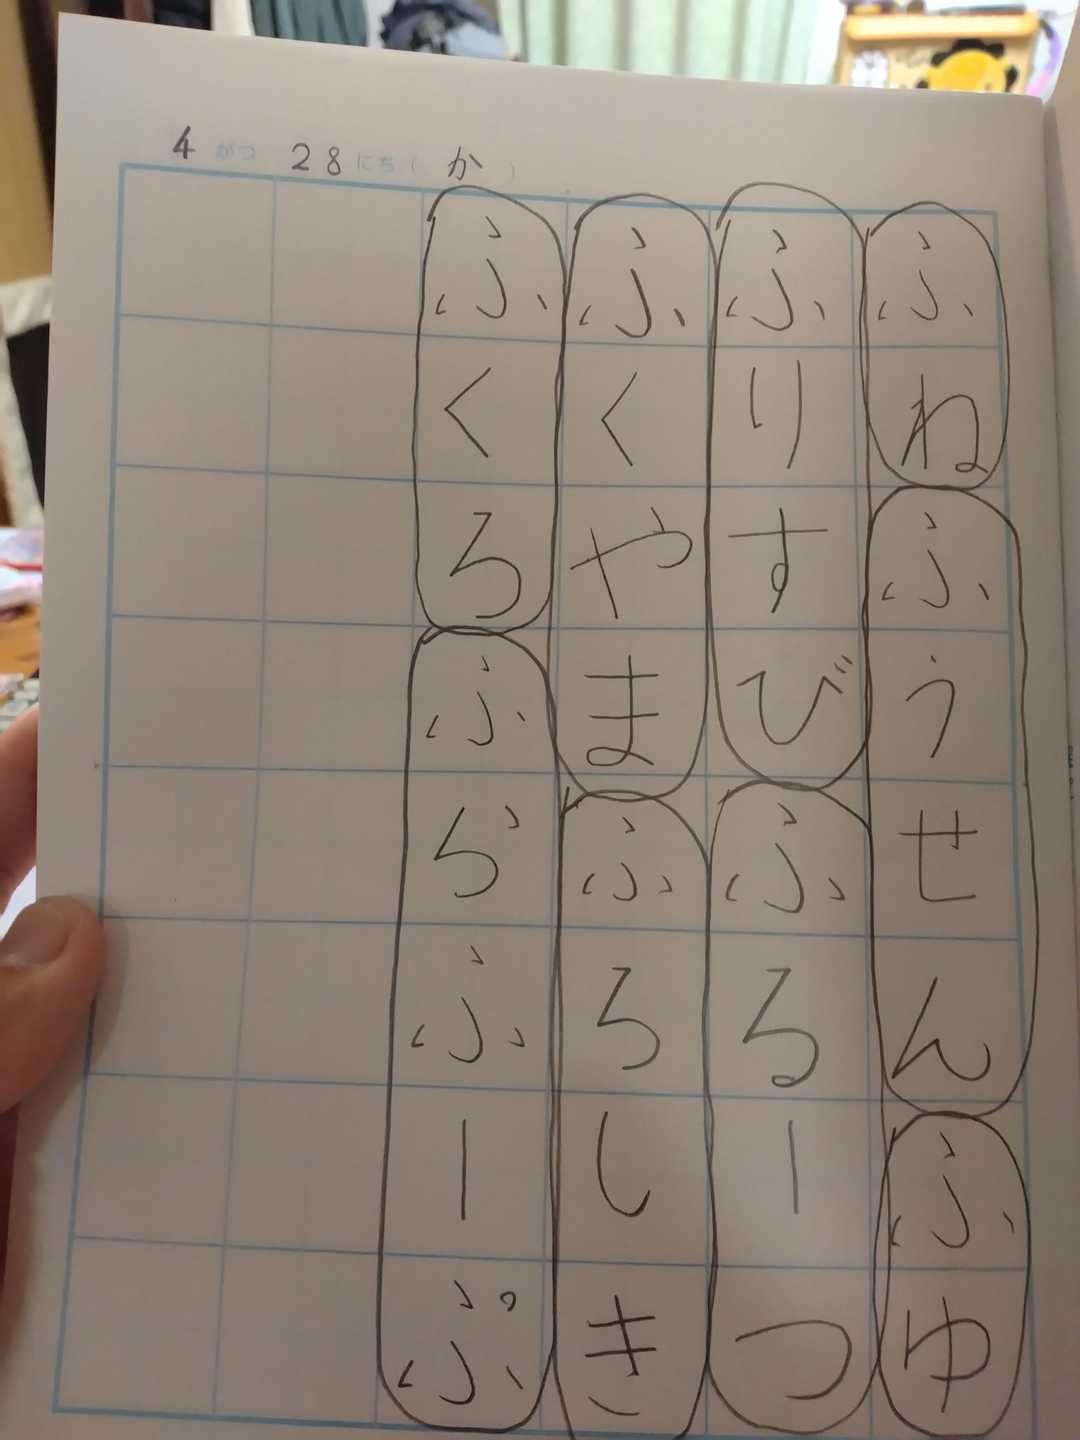 4がつ28にち(か)
ふねふうせんふゆ
ふりすびふるーつ
ふくやまふろしき
ふくろふらふーぷ